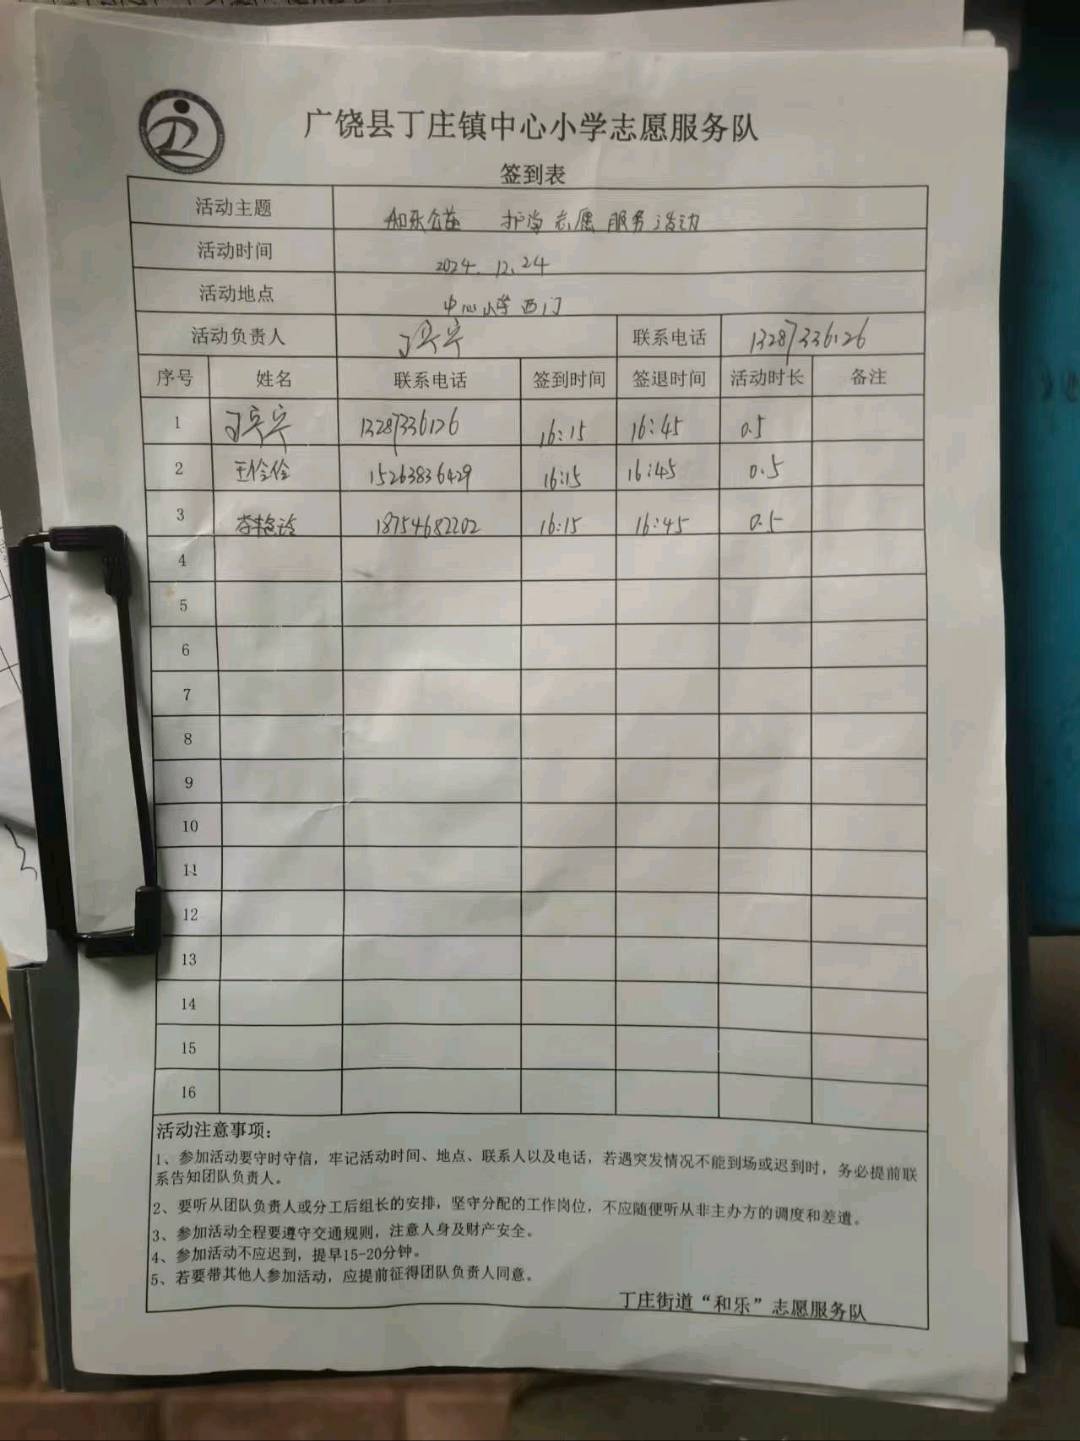 广饶县丁庄镇中心小学志愿服务队
签到表
活动主题 和乐公益 护学志愿服务活动
活动时间 2024.12.24
活动地点 中心小学西门
活动负责人 联系电话 13287336126
序号 姓名 联系电话 签到时间 签退时间 活动时长 备注
1 13287336126 16:15 16:45 0.5
2 王伶伶 15263836429 16:15 16:45 0.5
3 18754682202 16:15 16:45 0.5
4
5
6
7
8
9
10
11
12
13
14
15
16
活动注意事项：
1、参加活动要守时守信，牢记活动时间、地点、联系人以及电话，若遇突发情况不能到场或迟到时，务必提前联
系告知团队负责人。
2、要听从团队负责人或分工后组长的安排，坚守分配的工作岗位，不应随便听从非主办方的调度和差遣。
3、参加活动全程要遵守交通规则，注意人身及财产安全。
4、参加活动不应迟到，提早15-20分钟。
5、若要带其他人参加活动，应提前征得团队负责人同意。
丁庄街道“和乐”志愿服务队